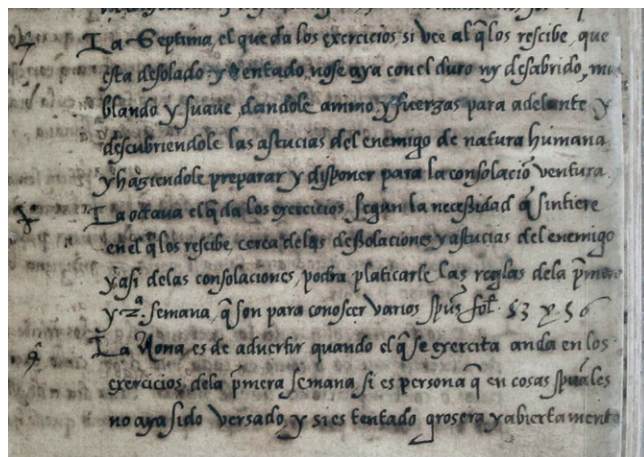 7 La Septima, el que da los exercicios, si vee al q̃ los rescibe, que
esta desolado y tentado, no se aya con el duro ny desabrido, mas
blando y suaue, dandole animo, y fuerzas para adelante y
descubriendole las astucias del enemigo de natura humana
y haziendole preparar y disponer para la consolació ventura.
8ª La octaua el q̃ da los exercicios, segun la necessidad q̃ sintiere
en el q̃ los rescibe, cerca delas dessolaciones y astucias del enemigo
y asi delas consolaciones, podra platicarle las reglas dela p̃mera
y 2.ª semana, q̃ son para conoscer varios spũs fol. 53 y 56
9ª La Nona, es de aduertir quando el q̃ se exercita anda en los
exercicios, dela p̃mera semana, si es persona q̃ en cosas spũales
no aya sido versado, y si es tentado grosera y abiertamente